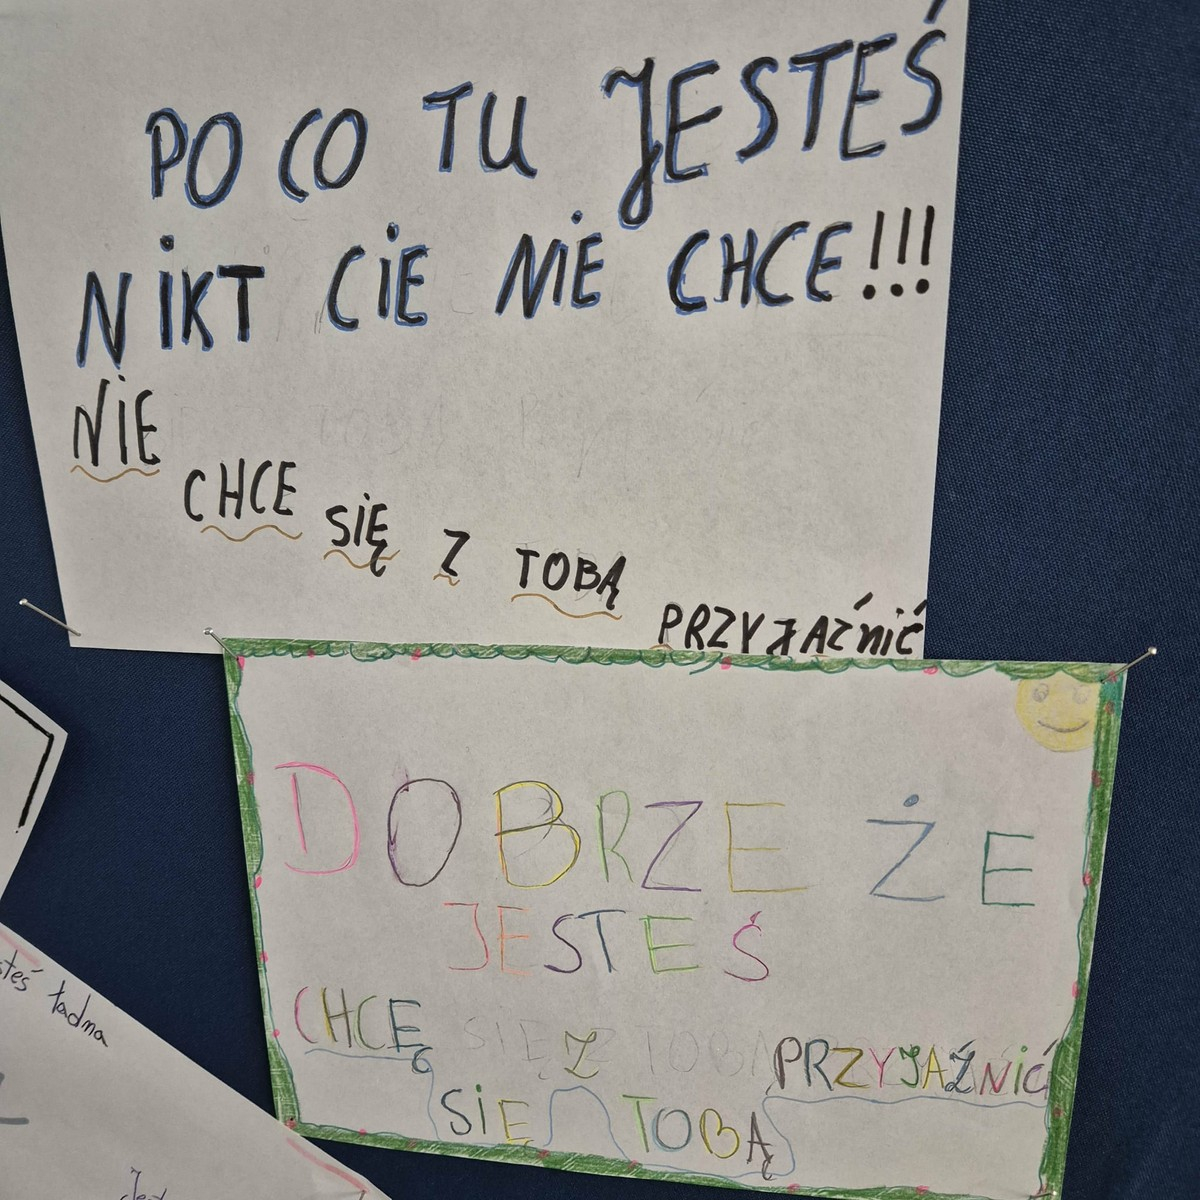 PO CO TU JESTEŚ
NIKT CIE NIE CHCE!!!
NIE CHCE SIĘ Z TOBĄ PRZYJAŹNIĆ
DOBRZE ŻE
JESTEŚ
CHCĘ SIĘ Z TOBĄ PRZYJAŹNIĆ
ładna